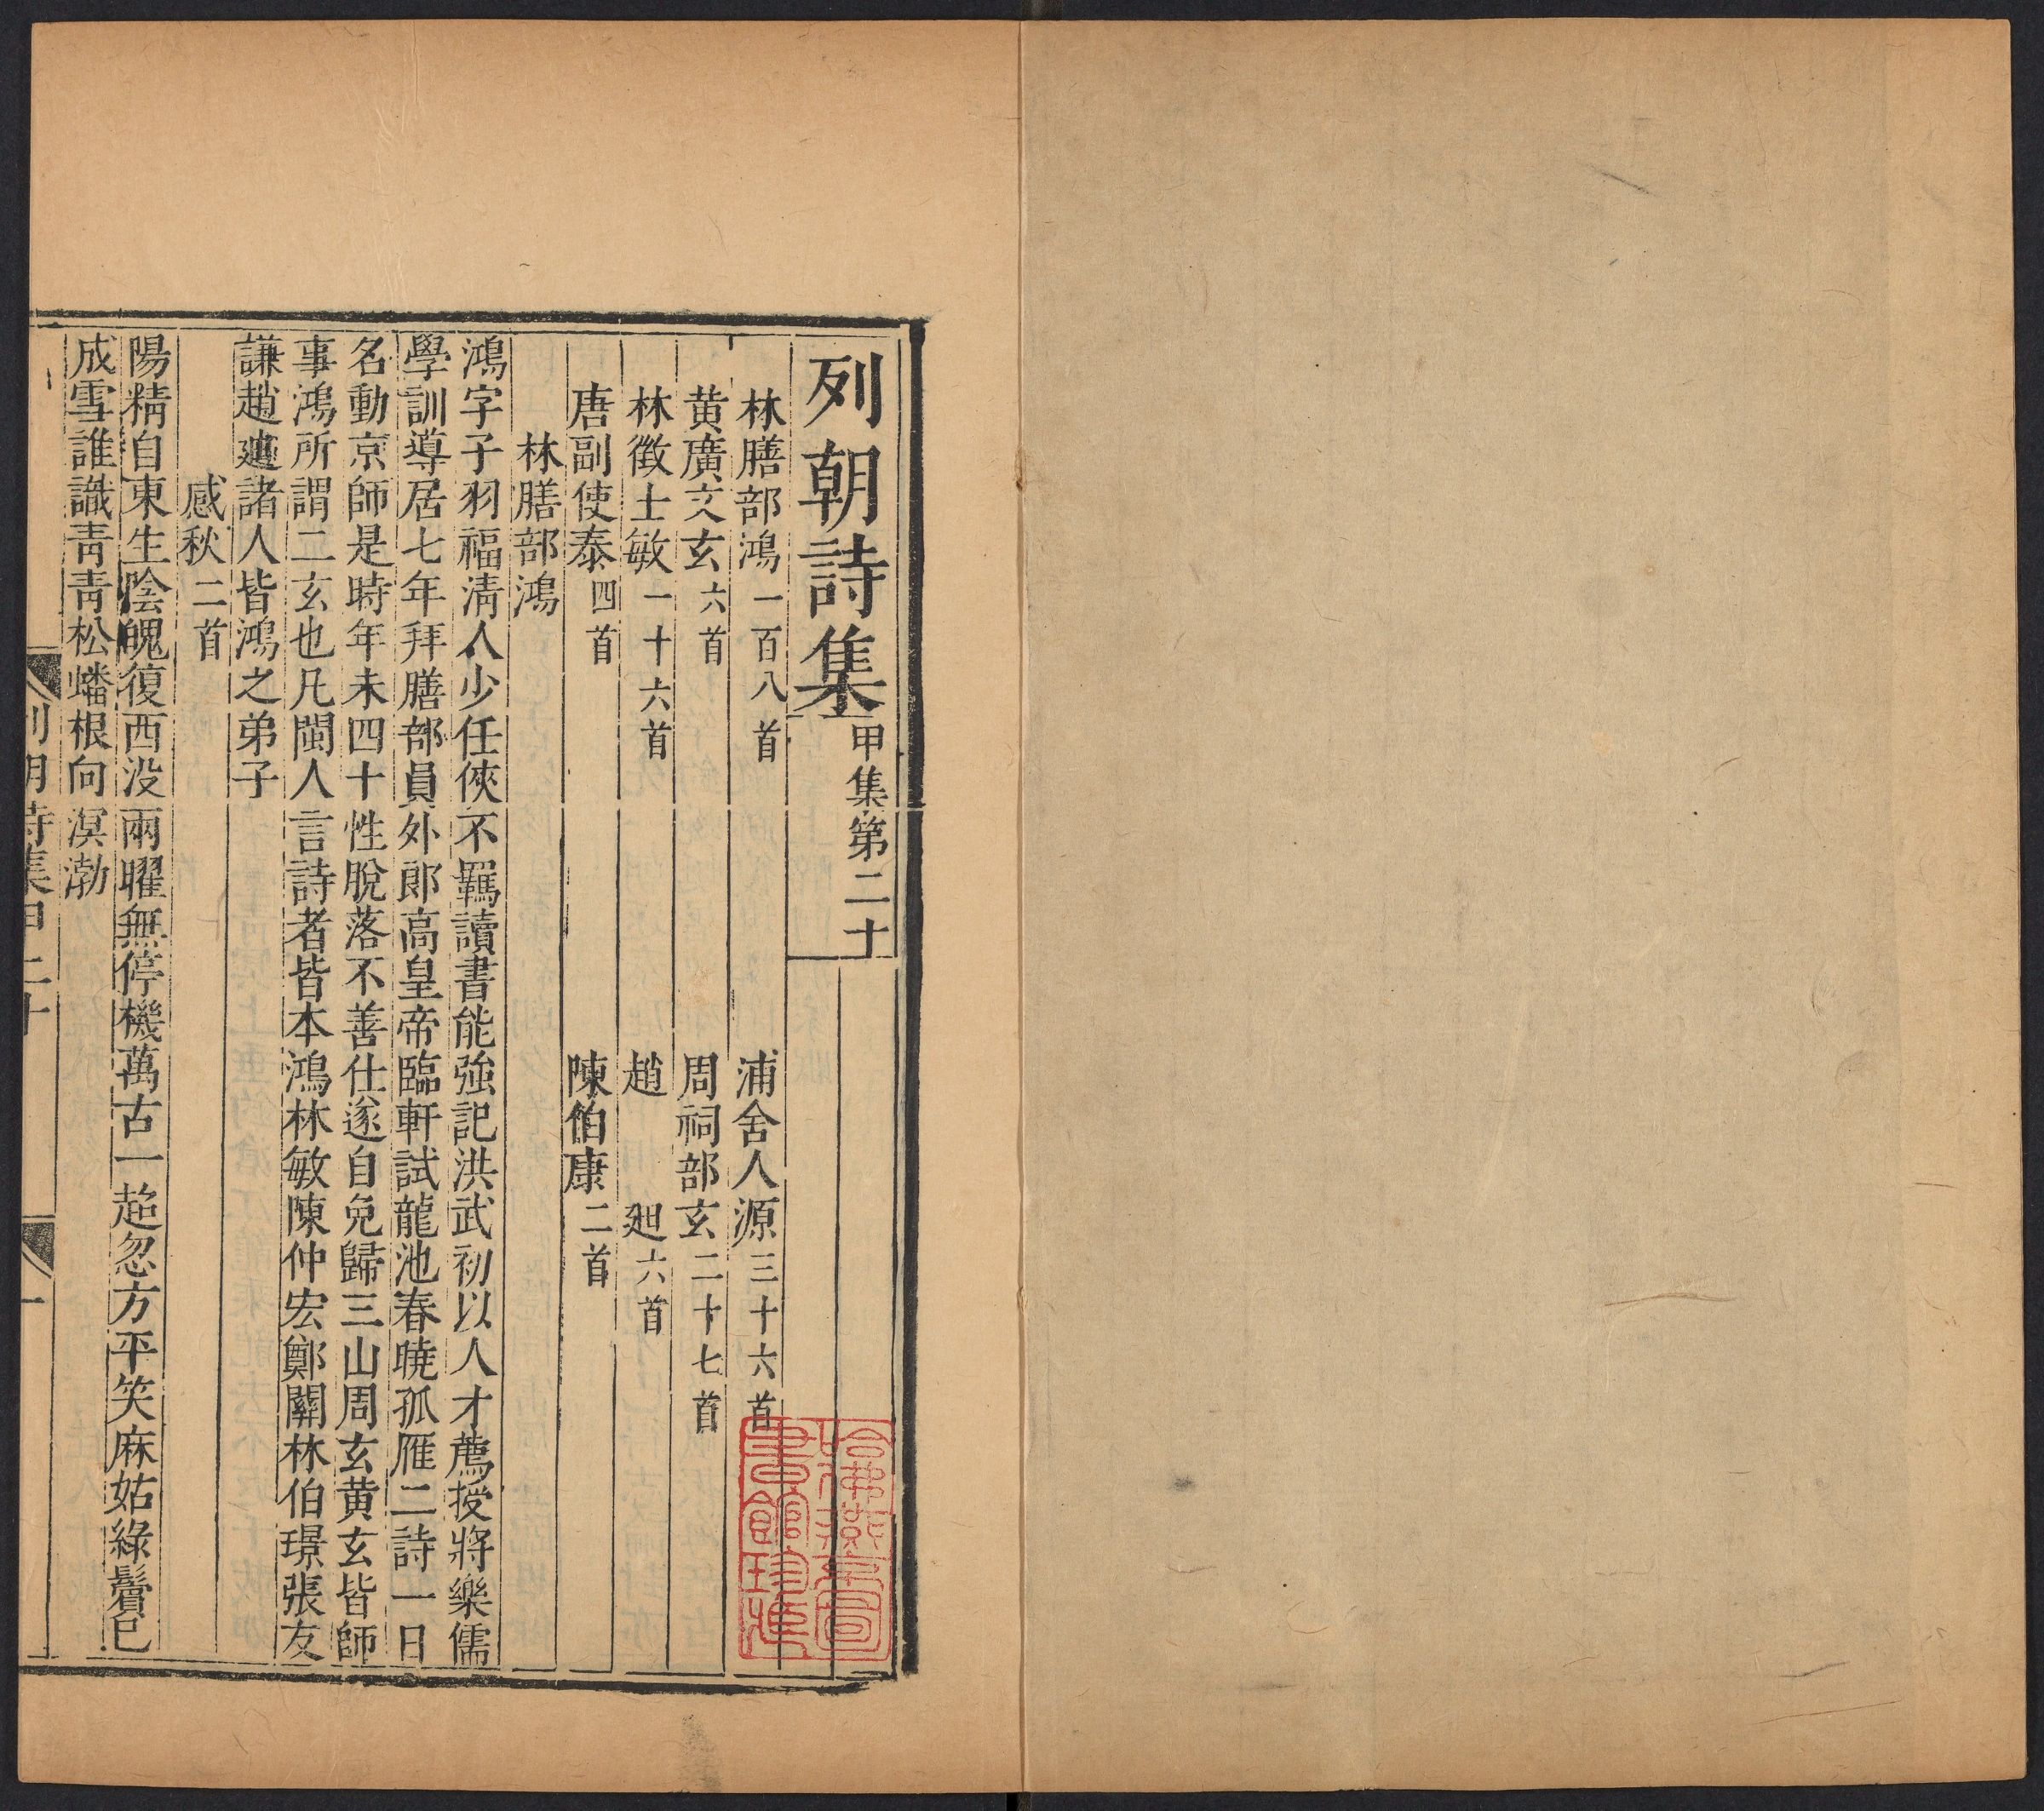 列朝詩集甲集第二十
林膳部鴻一百八首 浦舍人源三十六首
黄廣文玄六首 周祠部玄二十七首
林徵士敏一十六首 趙 廸六首
唐副使泰四首 陳伯康二首
林膳部鴻
鴻字子羽福清人少任俠不羈讀書能強記洪武初以人才薦授將樂儒
學訓導居七年拜膳部員外郎高皇帝臨軒試龍池春曉孤雁二詩一日
名動京師是時年未四十性脫落不善仕遂自免歸三山周玄黄玄皆師
事鴻所謂二玄也凡閩人言詩者皆本鴻林敏陳仲宏鄭關林伯璟張友
謙趙廸諸人皆鴻之弟子
感秋二首
陽精自東生陰魄復西没兩曜無停機萬古一超忽方平笑麻姑綠鬢已
成雪誰識青青松蟠根向溟渤
列朝詩集甲二十 一
哈佛燕京圖
書館珍藏